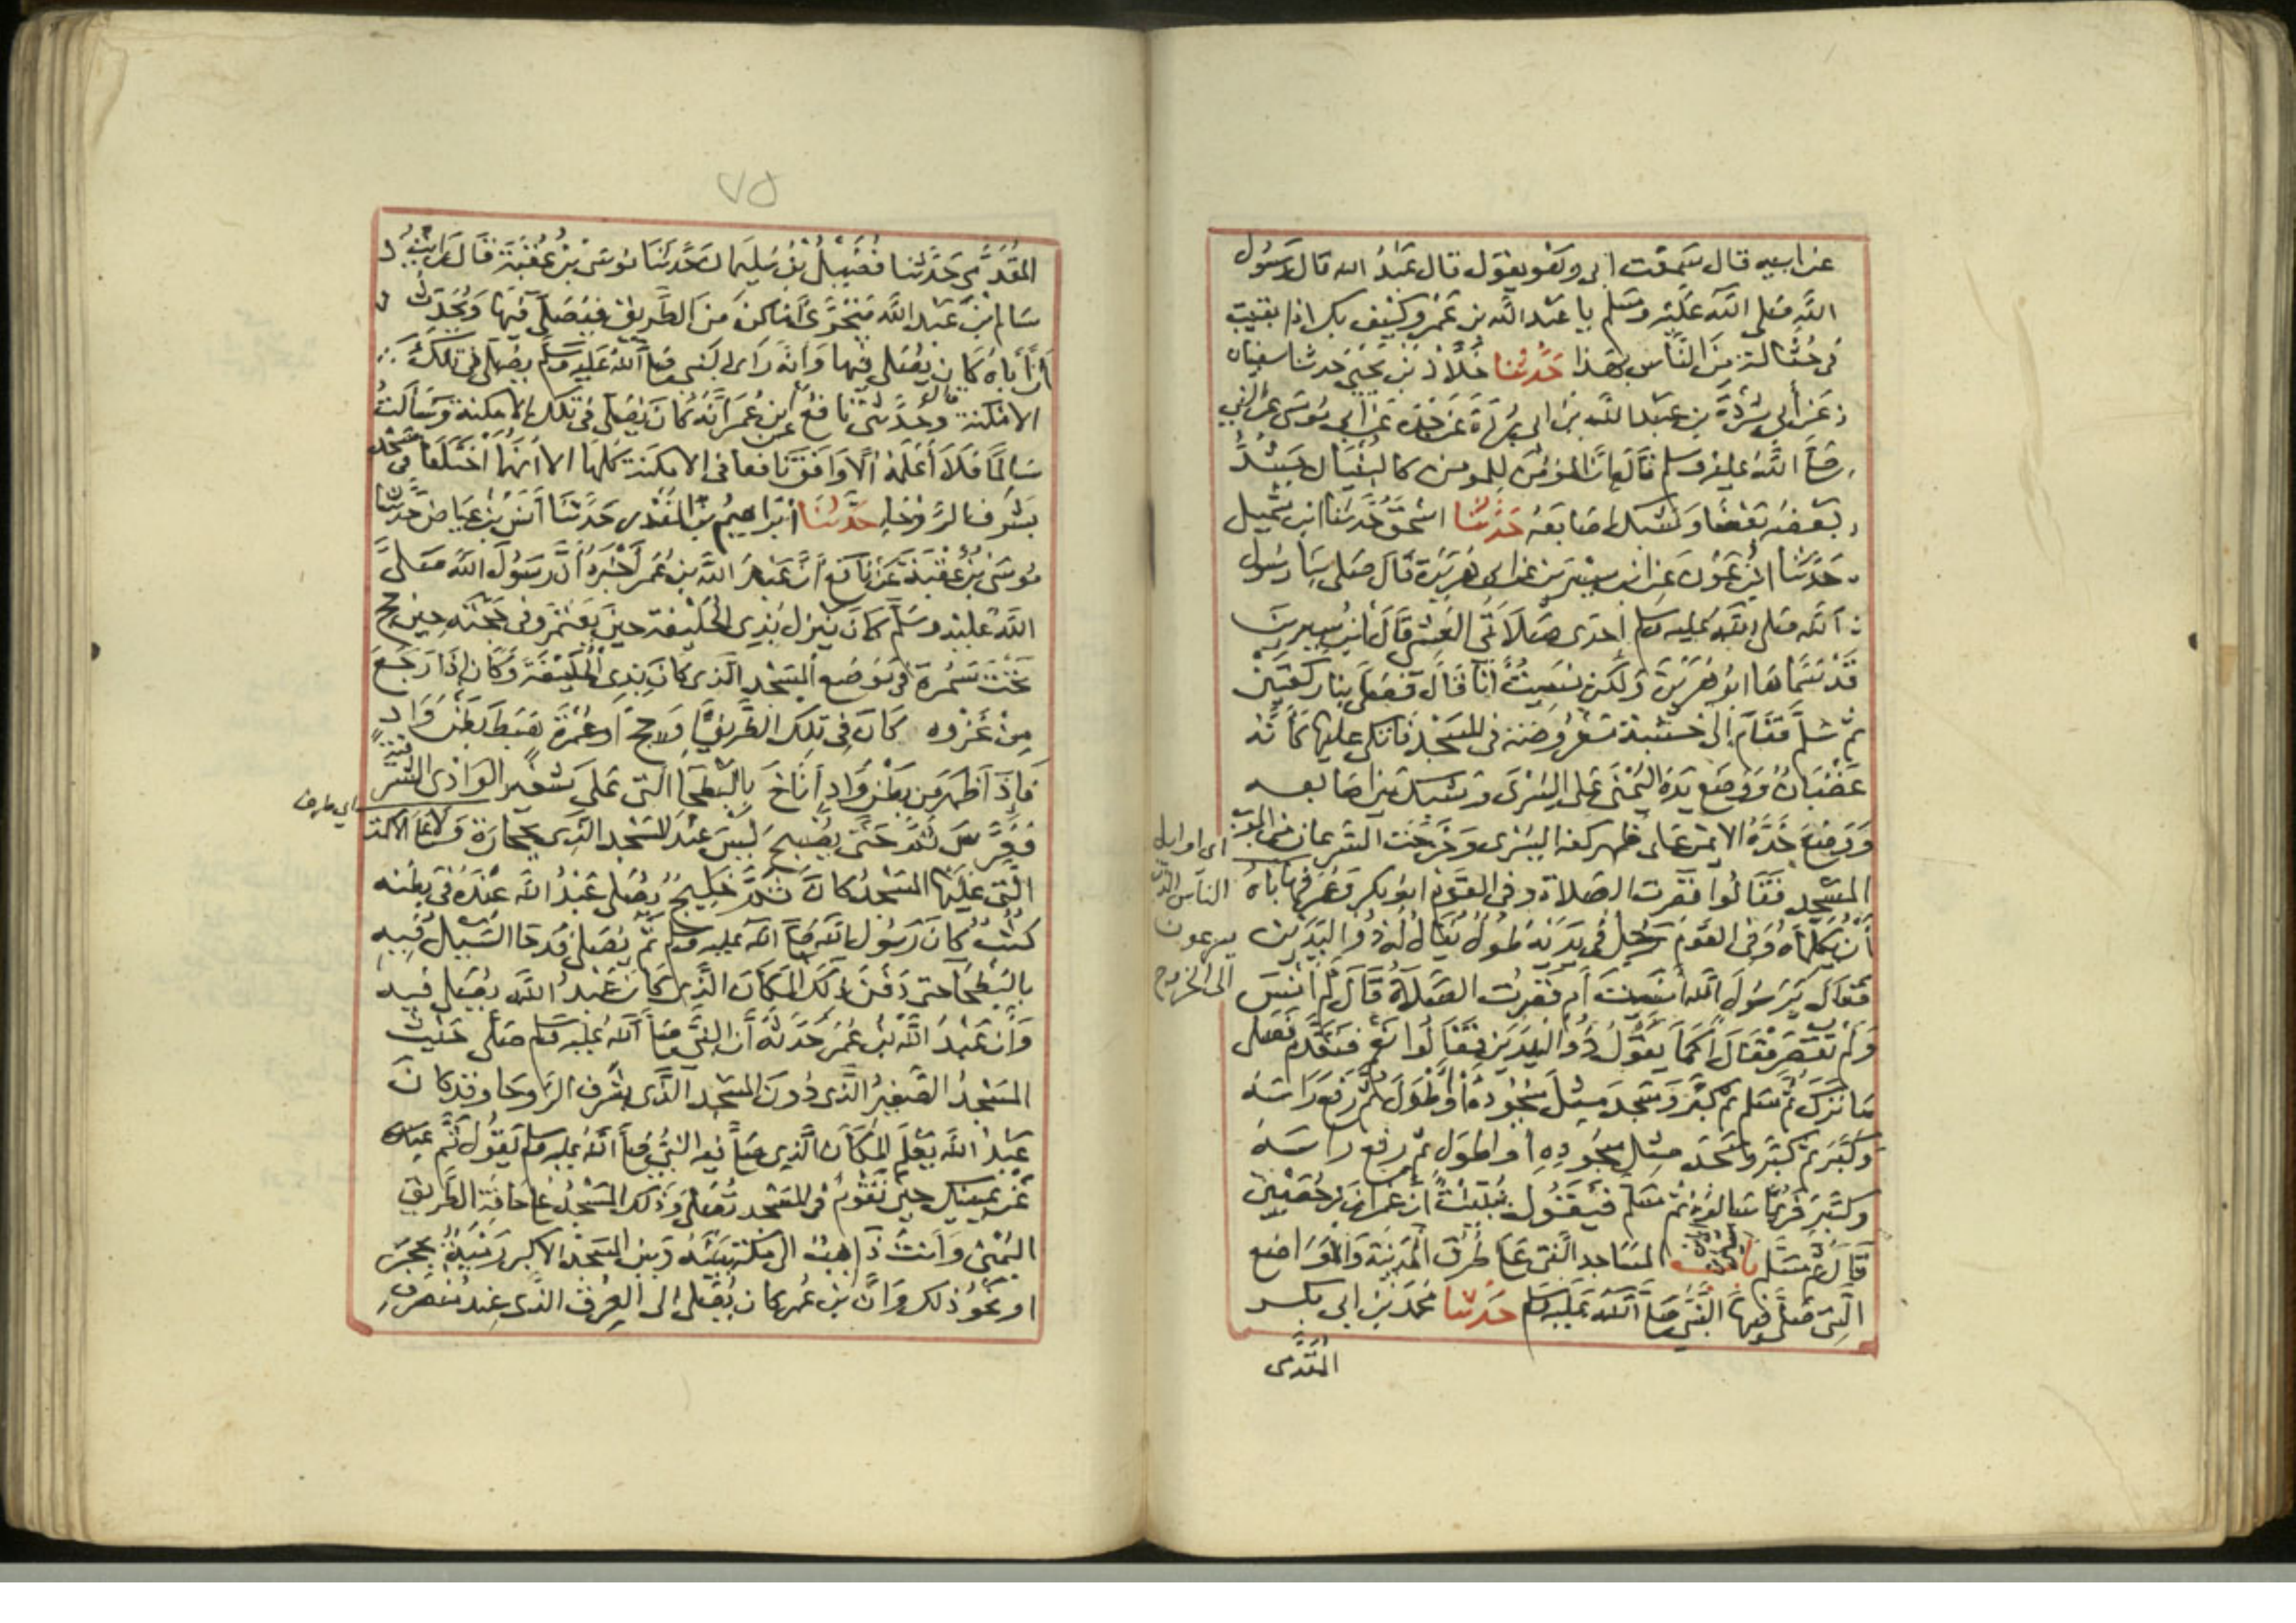 عن ابيه قال سمعت ابي وهو يقول قال عبد الله قال رسول
الله صلى الله عليه وسلم يا عبد الله بن عمرو كيف بك اذا بقيت
في حثالة من الناس بهذا حدثنا خلاد بن يحيى حدثنا سفيان
عن أبي بردة بن عبد الله بن ابي بردة عن جده عن ابي موسى عن النبي
صلى الله عليه وسلم قال ان المؤمن للمومن كالبنيان يشد
بعضه بعضا وشبك اصابعه حدثنا اسحق حدثنا ابن شميل
حدثنا ابن عون عن ابن سيرين عن ابي هريرة قال صلى بنا رسول
الله صلى الله عليه وسلم احدى صلاتي العشي قال ابن سيرين
قد سماها ابو هريرة ولكن نسيت أنا قال فصلى بنا ركعتين
ثم سلم فقام إلى خشبة معروضة في المسجد فاتكى عليها كأنه
غضبان ووضع يده اليمنى على اليسرى وشبك بين اصابعه
ووضع خده الايمن على ظهر كفه اليسرى وخرجت السرعان من ابواب
المسجد فقالوا قصرت الصلاة وفي القوم ابو بكر وعمر فهاباه
أن يكلماه وفي القوم رجل في يديه طول يقال له ذو اليدين
فقال يرسول الله أنسيت أم قصرت الصلاة قال لم أنس
ولم تقصر فقال أكما يقول ذو اليدين فقالوا نعم فتقدم فصلى
ما ترك ثم سلم ثم كبر وسجد مثل سجوده أو اطول ثم رفع راسه
وكبر ثم كبر وسجد مثل سجوده او اطول ثم رفع راسه
وكبر فربما سالوه ثم سلم فيقول نبئت ان عمران بن حصين
قال ثم سلم باب المساجد التي على طرق المدينة والمواضع
التي صلى فيها النبي صلى الله عليه وسلم حدثنا محمد بن ابي بكر
المقدمي
اي اوايل
الناس الذين
يسرعون
الى الخروج
٧٥
المقدمي حدثنا فضيل بن سليمان حدثنا موسى بن عقبة قال رايت
سالم بن عبد الله يتحرى أماكن من الطريق فيصلي فيها ويحدث
أن أباه كان يصلي فيها وانه راى النبي صلى الله عليه وسلم يصلي في تلك
الامكنة وحدثني نافع عن ابن عمر أنه كان يصلي في تلك الامكنة وسألت
سالما فلا أعلمه الا وافق نافعا في الامكنة كلها الا أنهما اختلفا في مسجد
بشرف الروحا حدثنا ابراهيم بن المنذر حدثنا أنس بن عياض حدثنا
موسى بن عقبة عن نافع أن عبد الله بن عمر أخبره أن رسول الله صلى
الله عليه وسلم كان ينزل بذي الحليفة حين يعتمر وفي حجته حين حج
تحت سمرة في موضع المسجد الذي كان بذي الحليفة وكان إذا رجع
من غزوه كان في تلك الطريق او حج او عمرة هبط بطن واد
فإذا ظهر من بطن واد أناخ بالبطحا التي على شفير الوادي الشرقية
فعرس ثم حتى يصبح ليس عند المسجد الذي بحجارة ولا على الاكمة
التي عليها المسجد كان ثم خليج يصلي عبد الله عنده في بطنه
كثب كان رسول الله صلى الله عليه وسلم ثم يصلي فدحا السيل فيه
بالبطحا حتى دفن ذلك المكان الذي كان عبد الله يصلي فيه
وأن عبد الله بن عمر حدثه أن النبي صلى الله عليه وسلم صلى حيث
المسجد الصغير الذي دون المسجد الذي بشرف الروحا وقد كان
عبد الله يعلم المكان الذي صلى فيه النبي صلى الله عليه وسلم يقول ثم
عن يمينك حين تقوم في المسجد تصلي وذلك المسجد على حافة الطريق
اليمنى وأنت ذاهب الى مكة بينه وبين المسجد الاكبر رمية بحجر
او نحو ذلك وأن بن عمر كان يصلي الى العرق الذي عند منصرف
اي طرف